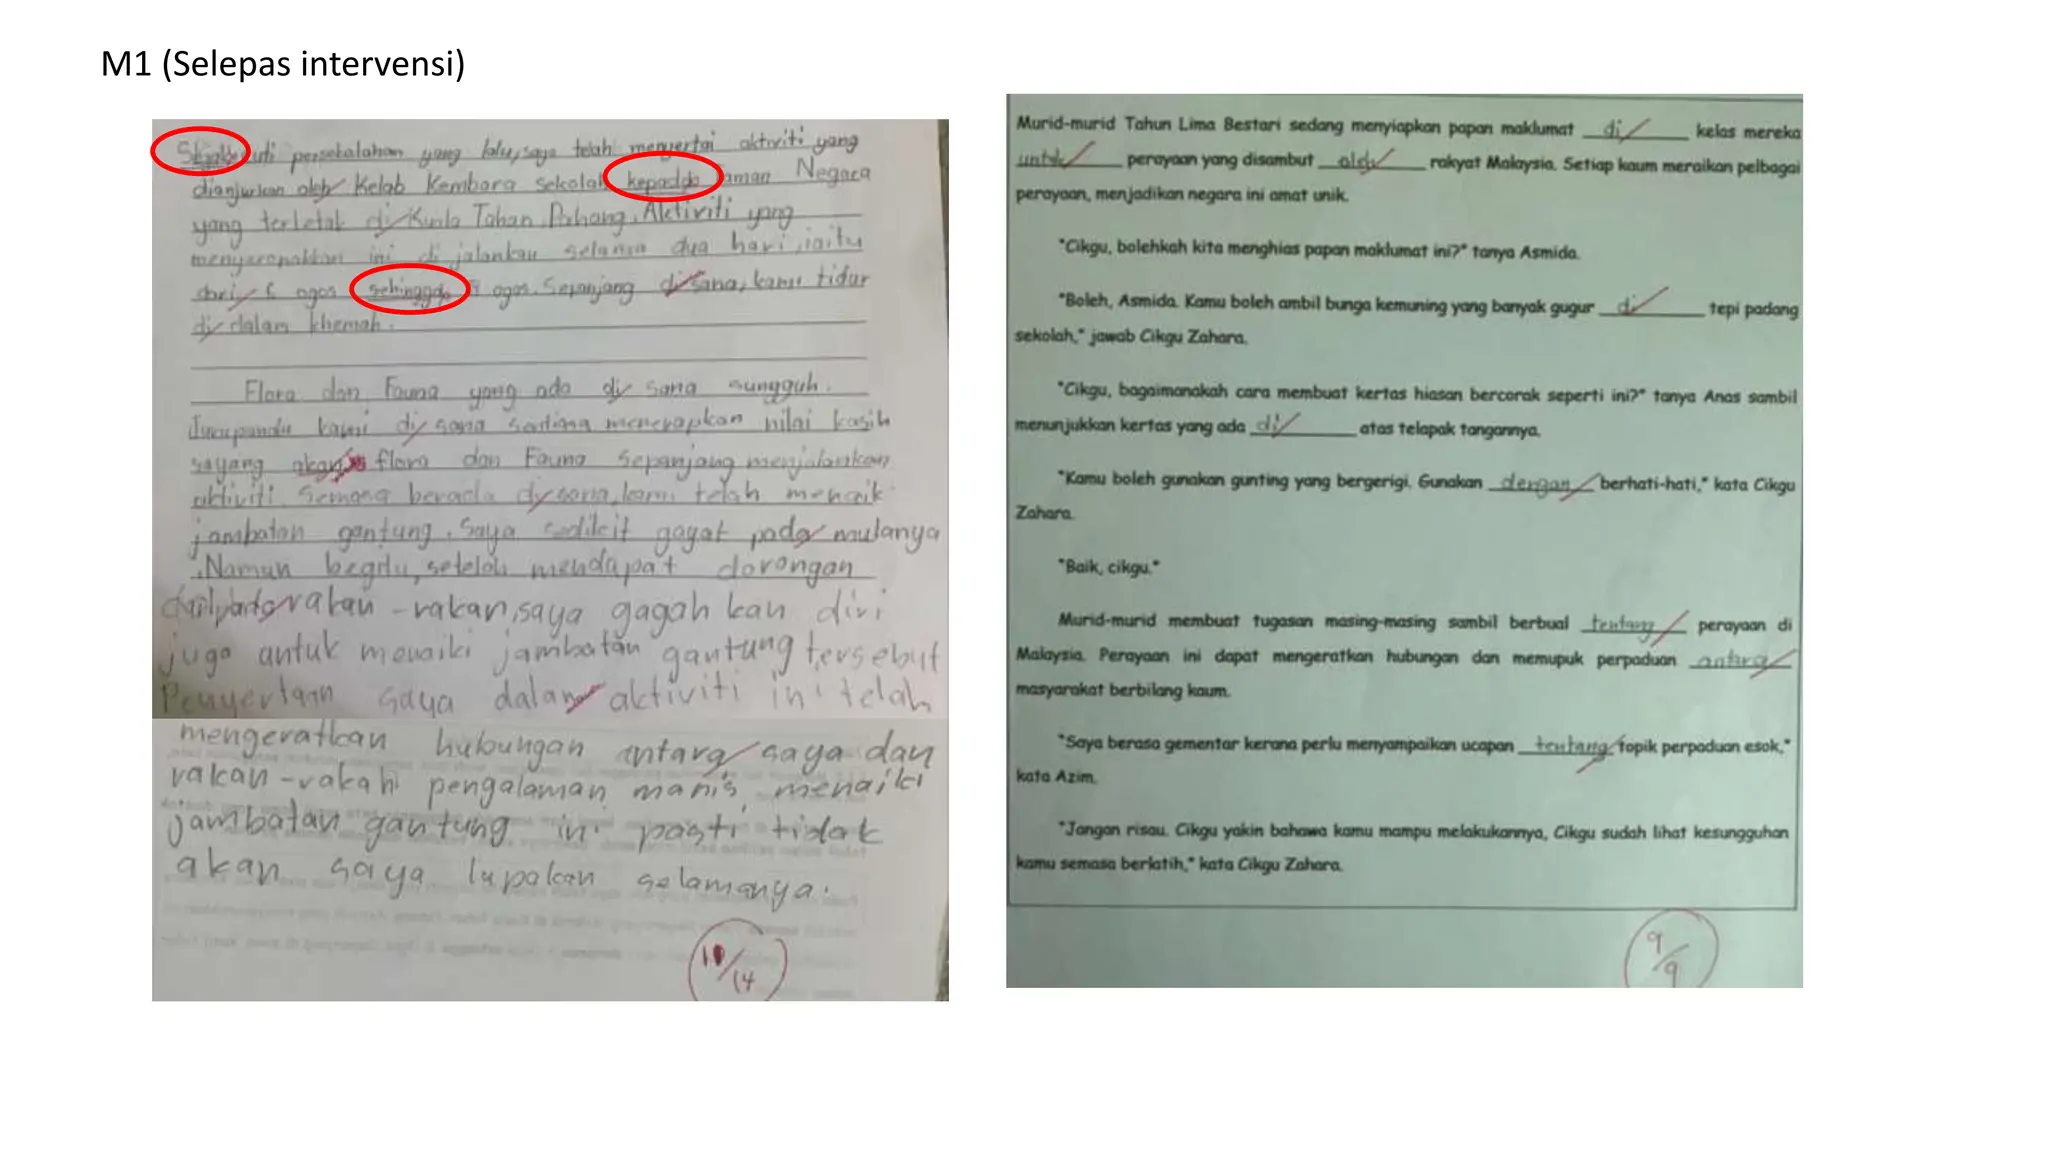 M1 (Selepas intervensi)
cuti persekolahan yang lalu, saya telah menyertai aktiviti yang
dianjurkan oleh Kelab Kembara sekolah kepada Taman Negara
yang terletak di Kuala Tahan, Pahang. Aktiviti yang
menyeronokkan ini di jalankan selama dua hari, iaitu
dari ogos sehingga ogos. Sepanjang di sana, kami tidur
di dalam khemah.
Flora dan Fauna yang ada di sana sungguh.
Jurupandu kami di sana sentiasa menerapkan nilai kasih
sayang akan flora dan Fauna sepanjang menjalankan
aktiviti. Semasa berada di sana, kami telah menaik
jambatan gantung. Saya sedikit gayat pada mulanya
.Namun begitu, setelah mendapat dorongan
daripada rakan-rakan, saya gagah kan diri
juga untuk menaiki jambatan gantung tersebut
Penyertaan saya dalam aktiviti ini telah
mengeratkan hubungan antara saya dan
rakan-rakan pengalaman manis menaiki
jambatan gantung ini pasti tidak
akan saya lupakan selamanya.
10/14
Murid-murid Tahun Lima Bestari sedang menyiapkan papan maklumat di kelas mereka
untuk perayaan yang disambut oleh rakyat Malaysia. Setiap kaum meraikan pelbagai
perayaan, menjadikan negara ini amat unik.
"Cikgu, bolehkah kita menghias papan maklumat ini?" tanya Asmida.
"Boleh, Asmida. Kamu boleh ambil bunga kemuning yang banyak gugur di tepi padang
sekolah," jawab Cikgu Zahara.
"Cikgu, bagaimanakah cara membuat kertas hiasan bercorak seperti ini?" tanya Anas sambil
menunjukkan kertas yang ada di atas telapak tangannya.
"Kamu boleh gunakan gunting yang bergerigi. Gunakan dengan berhati-hati," kata Cikgu
Zahara.
"Baik, cikgu."
Murid-murid membuat tugasan masing-masing sambil berbual tentang perayaan di
Malaysia. Perayaan ini dapat mengeratkan hubungan dan memupuk perpaduan antara
masyarakat berbilang kaum.
"Saya berasa gementar kerana perlu menyampaikan ucapan tentang topik perpaduan esok,"
kata Azim.
"Jangan risau. Cikgu yakin bahawa kamu mampu melakukannya, Cikgu sudah lihat kesungguhan
kamu semasa berlatih," kata Cikgu Zahara.
9/9